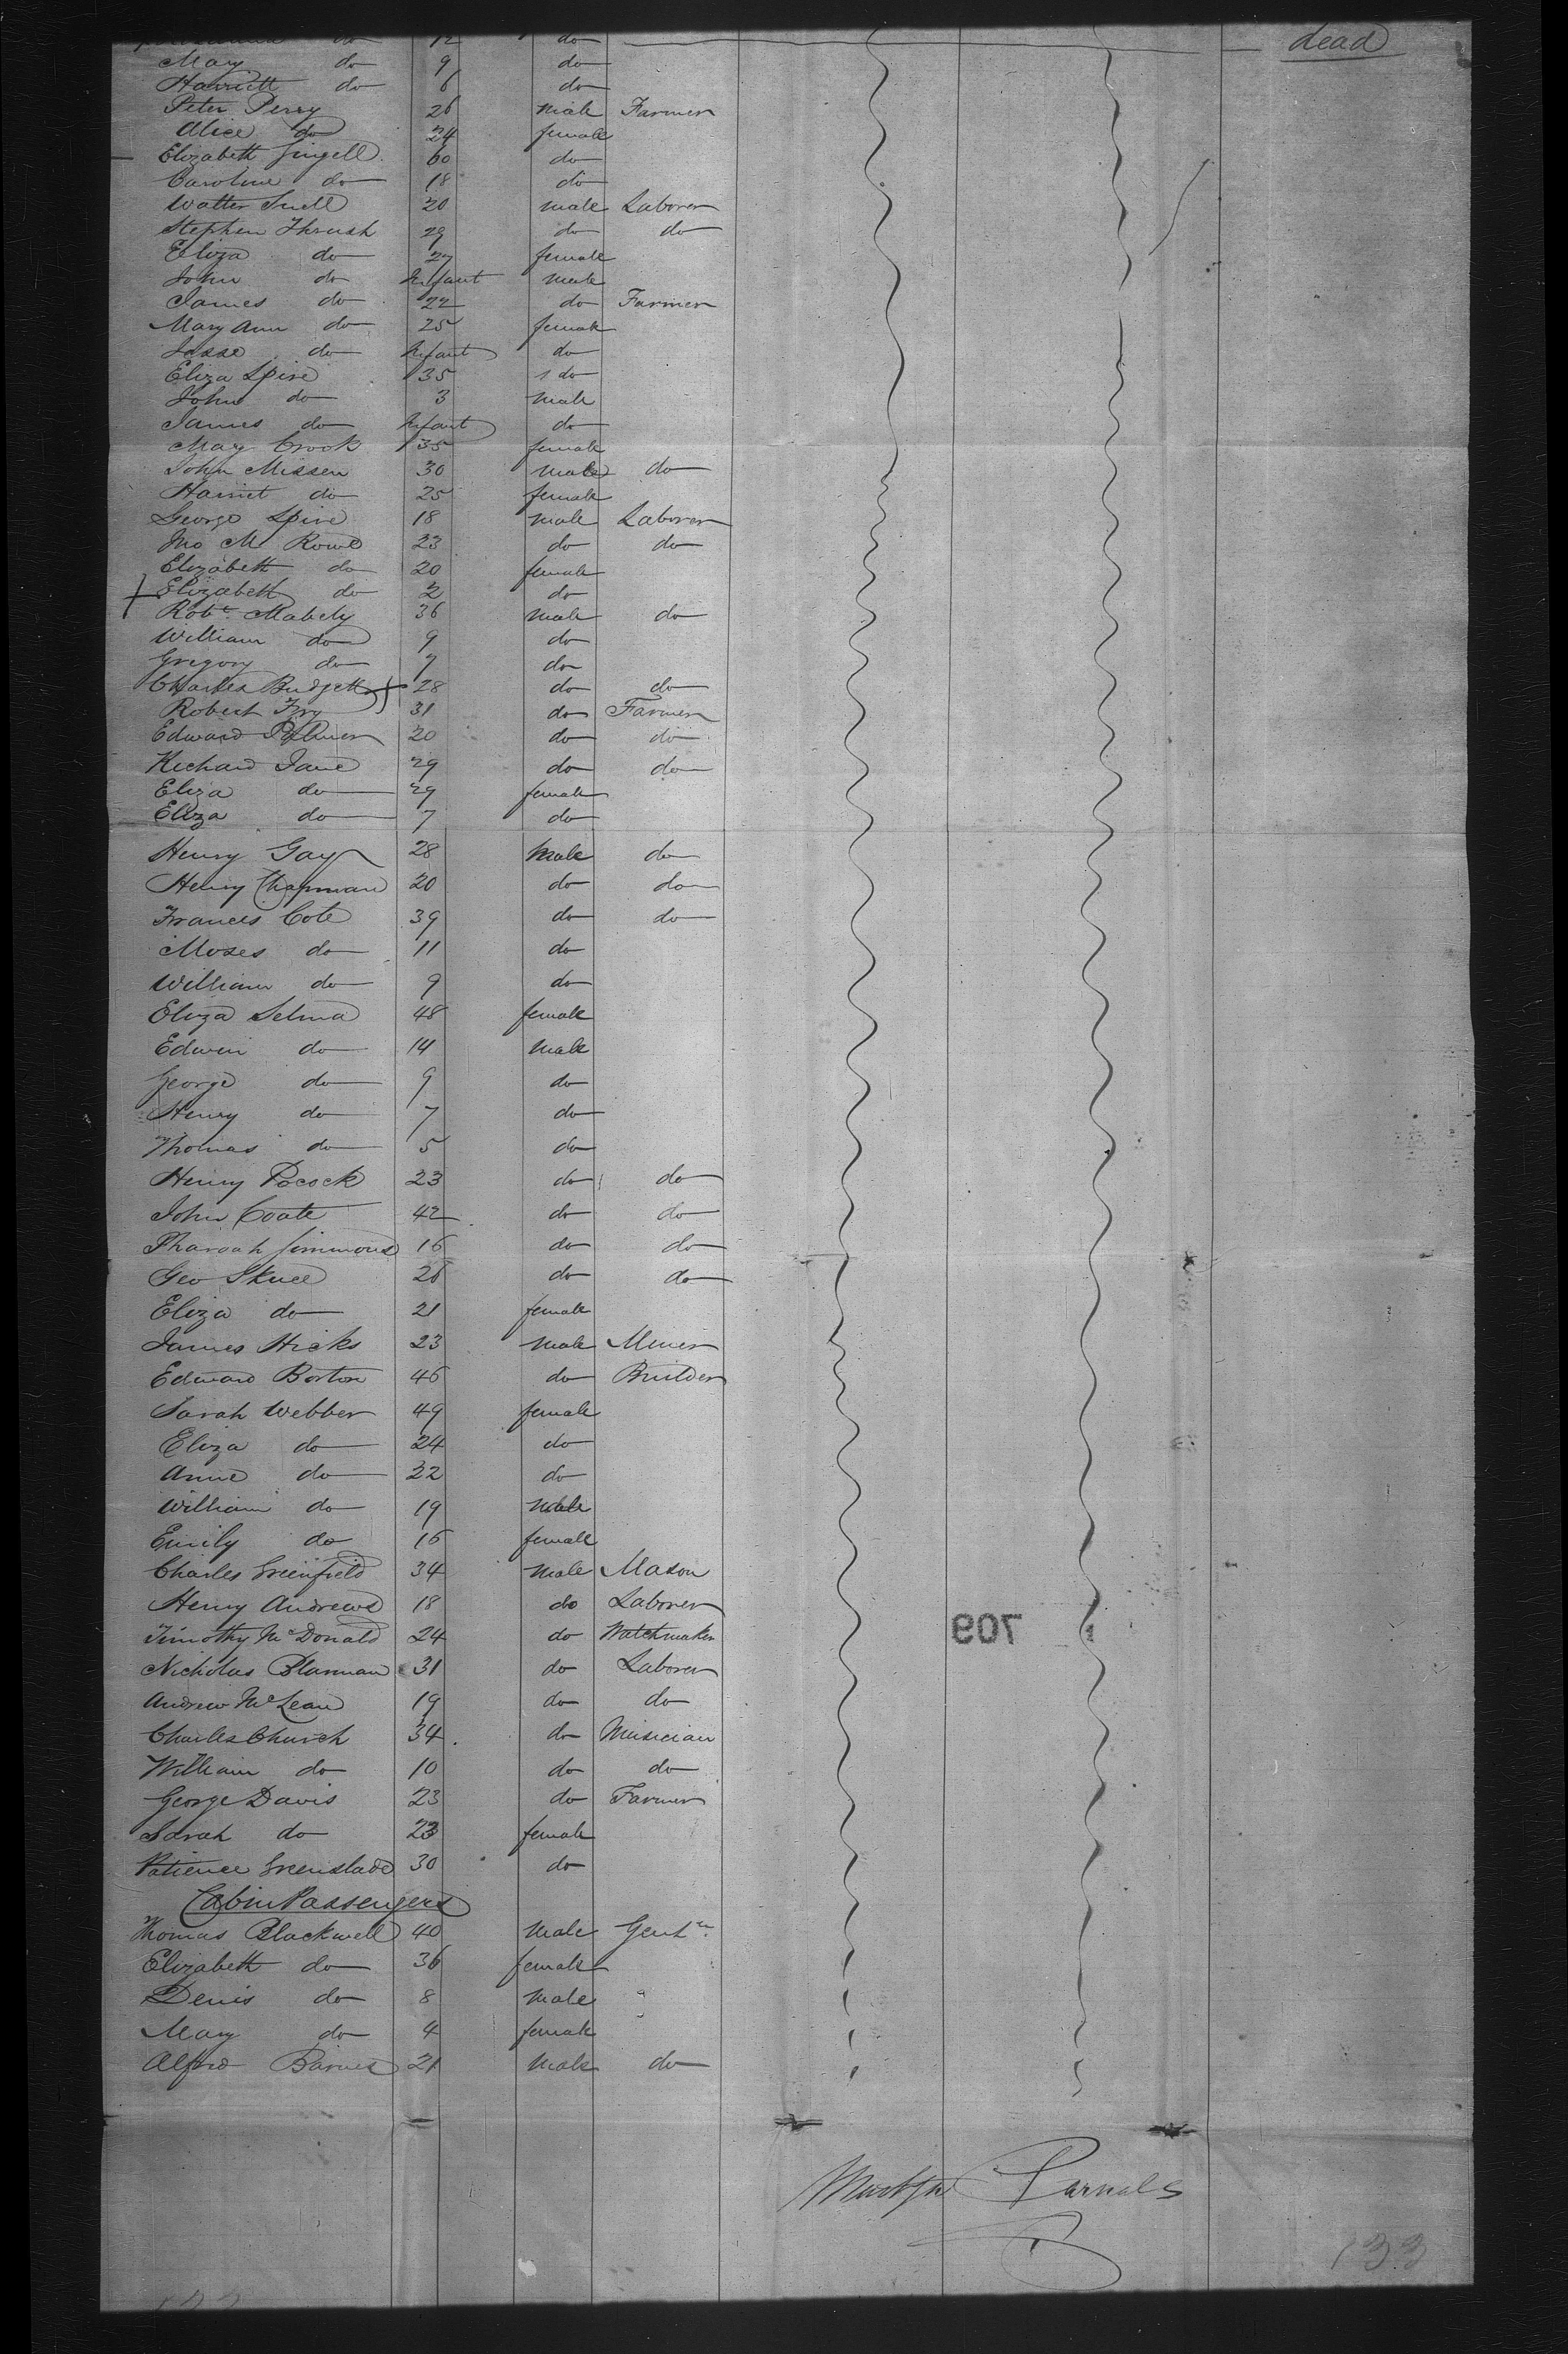 do 12 do dead
Mary do 9 do
Harriett do 6 do
Peter Perry 26 male Farmer
Alice do 24 female
Elizabeth Gingell 60 do
Caroline do 18 do
Walter Snell 20 male Laborer
Stephen Thrush 29 do do
Eliza do 27 female
John do Infant male
James do 22 do Farmer
Mary Ann do 25 female
Jesse do Infant do
Eliza Spire 35 do
John do 3 male
James do Infant do
Mary Crook 35 female
John Missen 30 male do
Harriet do 25 female
George Spire 18 male Laborer
Jno M Rowe 23 do do
Elizabeth do 20 female
Elizabeth do 2 do
Robt. Mabely 36 male do
William do 9 do
Gregory do 7 do
Charles Budgett 28 do do
Robert Fry 31 do Farmer
Edward Palmer 20 do do
Richard Jane 29 do do
Eliza do 29 female
Eliza do 7 do
Henry Gay 28 Male do
Henry Chapman 20 do do
Frances Cote 39 do do
Moses do 11 do
William do 9 do
Eliza Selma 48 female
Edwin do 14 male
George do 9 do
Henry do 7 do
Thomas do 5 do
Henry Pocock 23 do do
John Coate 42 do do
Pharoah Simmons 16 do do
Geo Skuce 26 do do
Eliza do 21 female
James Hicks 23 male Miner
Edward Borton 46 do Builder
Sarah Webber 49 female
Eliza do 24 do
Anne do 22 do
William do 19 male
Emily do 16 female
Charles Greenfield 34 male Mason
Henry Andrews 18 do Laborer
Timothy McDonald 24 do Watchmaker
709
Nicholas Blamman 31 do Laborer
Andrew McLean 19 do do
Charles Church 34 do Musician
William do 10 do do
George Davis 23 do Farmer
Sarah do 23 female
Patience Greenslade 30 do
Cabin Passengers
Thomas Blackwell 40 male Gentn.
Elizabeth do 36 female
Denis do 8 male
Mary do 4 female
Alfred Barnes 21 male do
Parnals
133